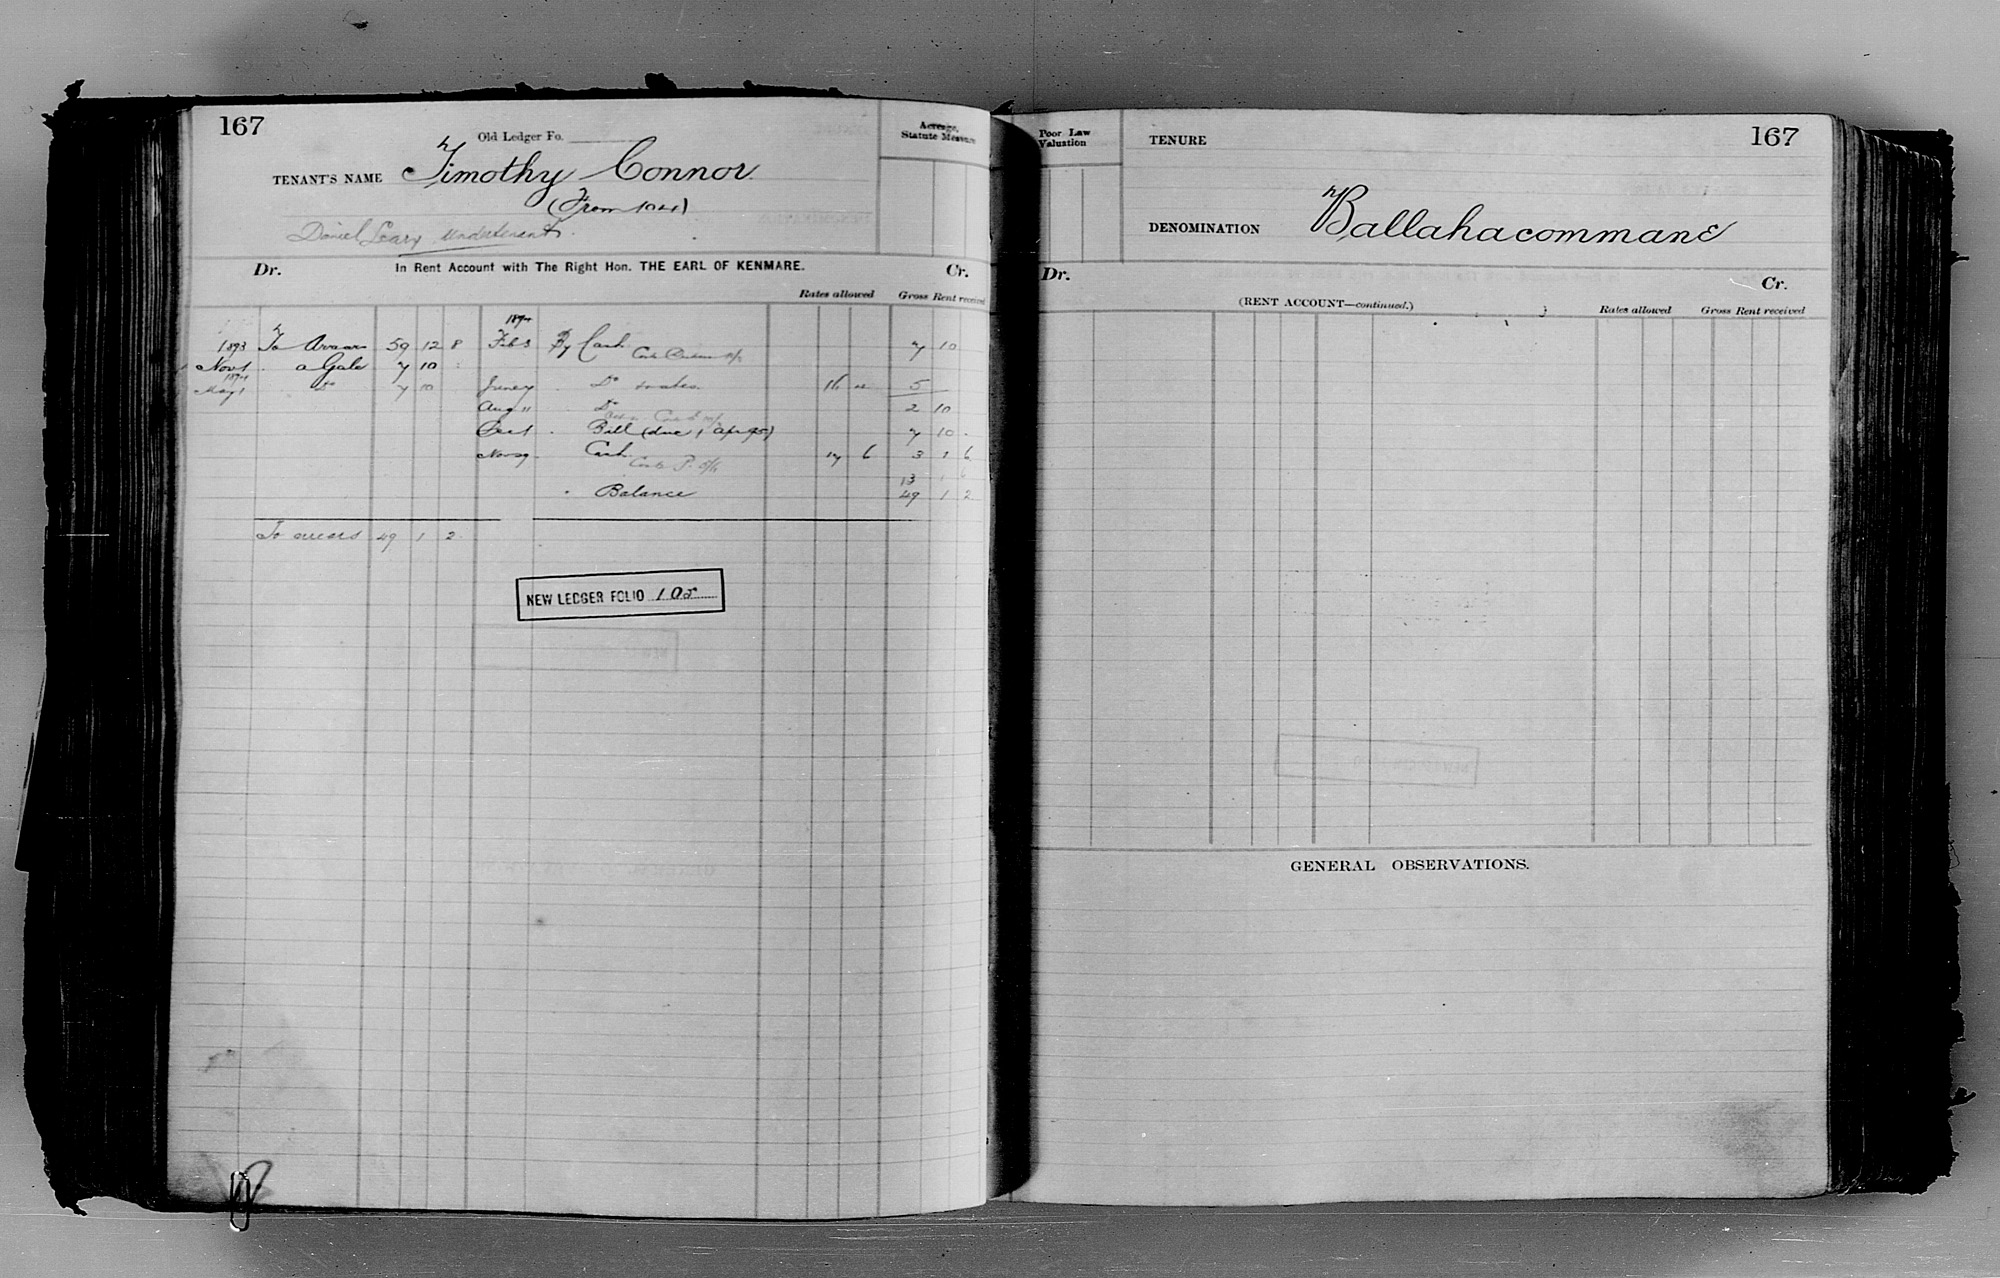 167
Old Ledger Fo.
Acreage, Statute Measure
TENANT'S NAME Timothy Connor
(From 1041)
Daniel Leary undertenant.
Dr. In Rent Account with The Right Hon. THE EARL OF KENMARE. Cr.
Rates allowed Gross Rent received
1894
1893 To Arrears 59 12 8 Feb 3 By Cash 7 10
Nov 1 a Gale 7 10
1894
May 1 Do 7 10 Do 16 5
Aug 11 Do 2 10
Dec 1 Bill (due 1 Apr 95) 7 10
Nov 29 Cash 17 6 3 1 6
13 1 6
Balance 49 1 2
To arrears 49 1 2
NEW LEDGER FOLIO 105
Poor Law Valuation
TENURE
167
DENOMINATION Ballahacommane
Dr. Cr.
(RENT ACCOUNT—continued.)
Rates allowed Gross Rent received
GENERAL OBSERVATIONS.